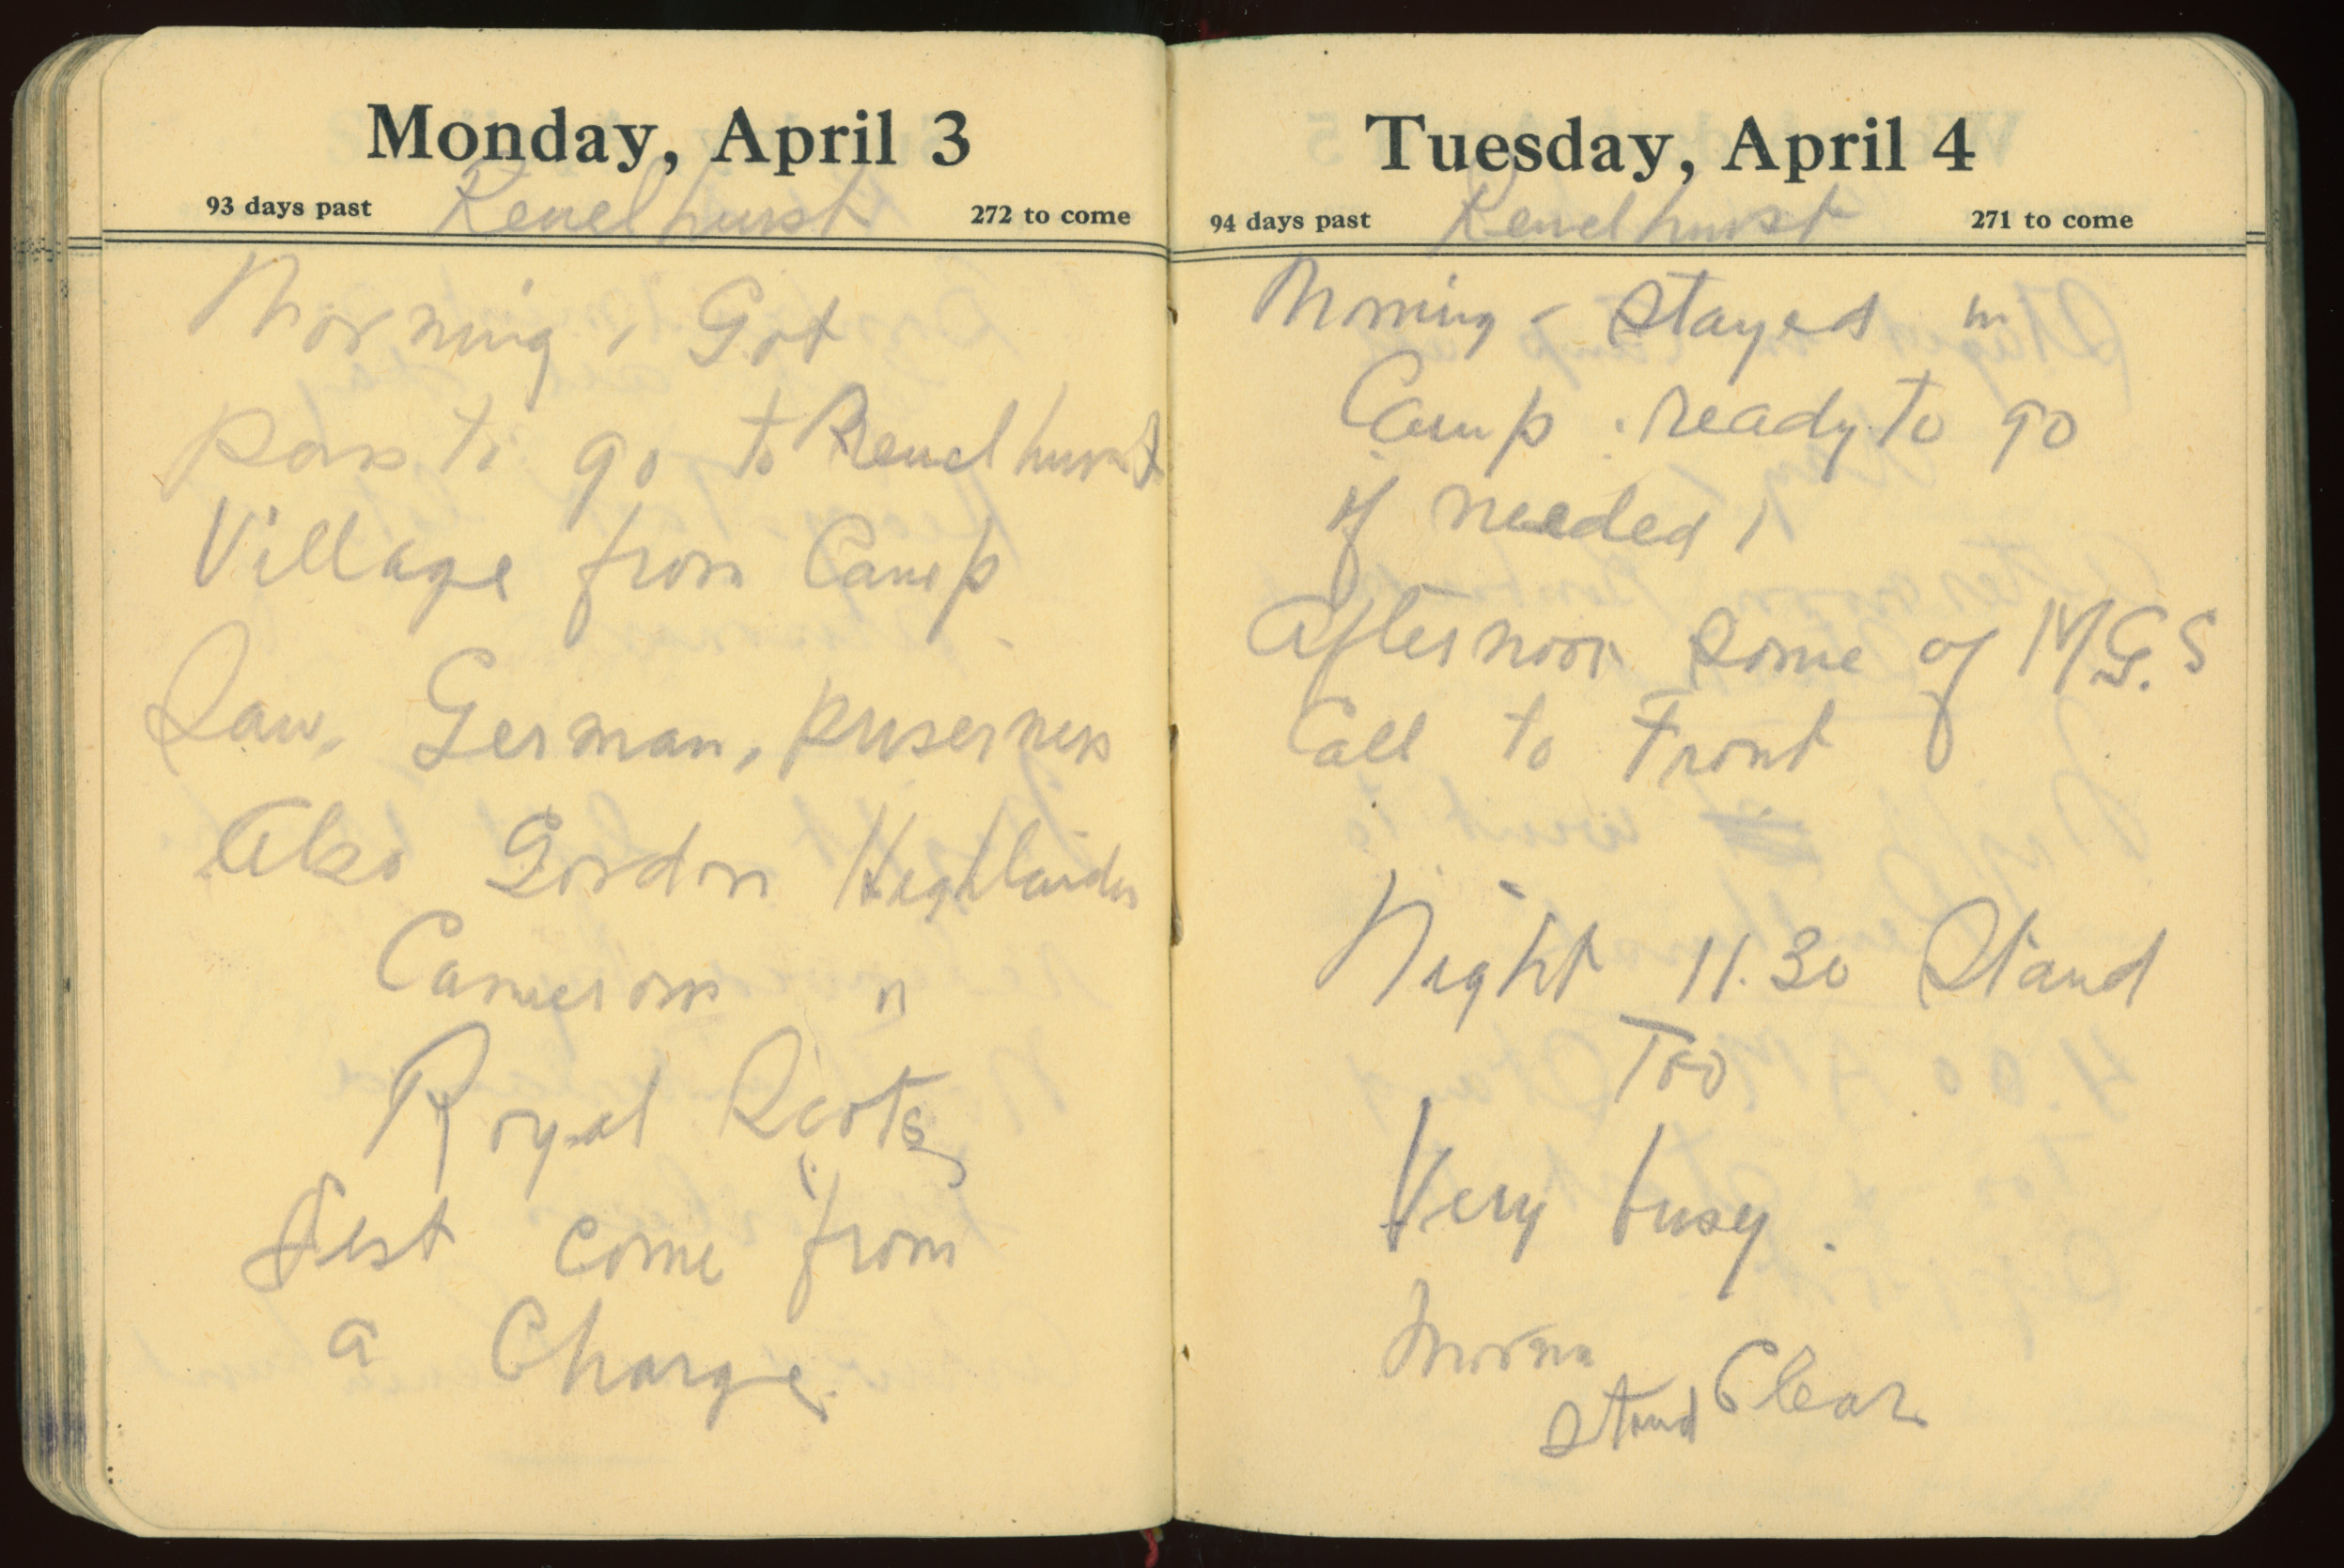 Monday, April 3
93 days past Renelhurst 272 to come
Morning, Got
pass to go to Renelhurst
Village from Camp
Saw, German, priserners
Also Gordon Highlander
Camerons "
Royal Scots
Jest come from
a Charge.
Tuesday, April 4
94 days past Renelhurst 271 to come
Morning - Stayed in
Camp . ready to go
if needed,
Afternoon some of M.G.S
Call to Front
Night 11.30 Stand
Too
Very busy.
Stand Clear